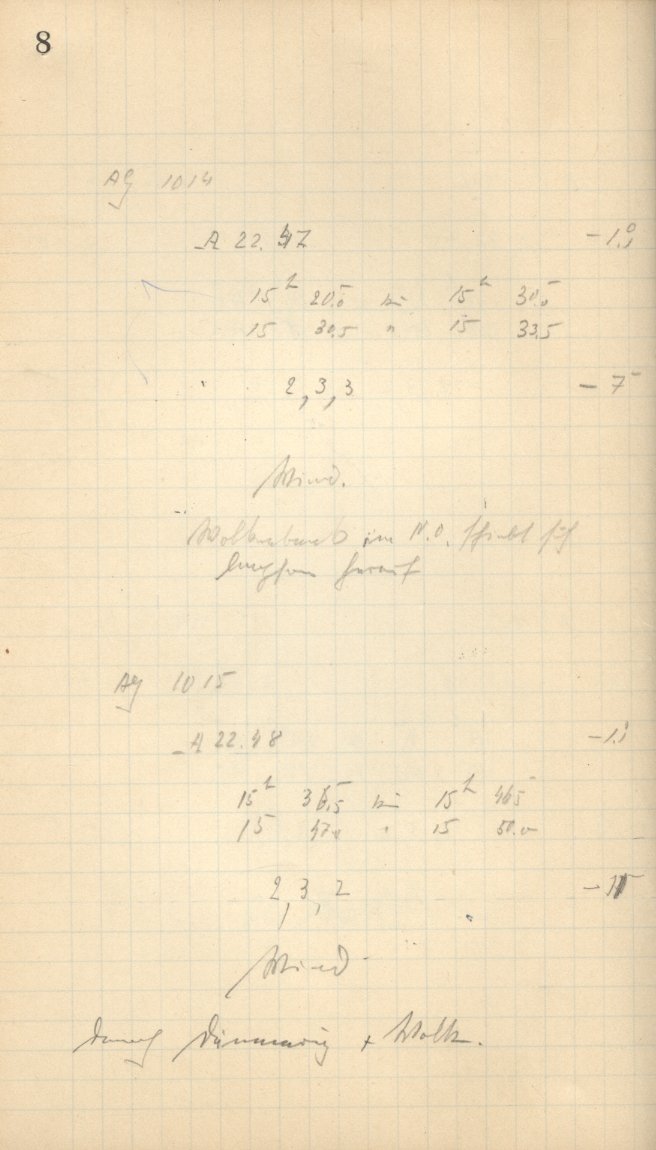 8
AG 1014
A 22.47 -1.1
15h 20.0 bis 15h 30.0
15 30.5 " 15 33.5
2, 3, 3 - 7
Wind.
Wolkenbank im N.O. schiebt sich
langsam herauf
AG 1015
A 22.48 -1.1
15h 36.5 bis 15h 46.5
15 47.0 " 15 50.0
2, 3, 2
Wind
Danach Dämmerung + Wolk.